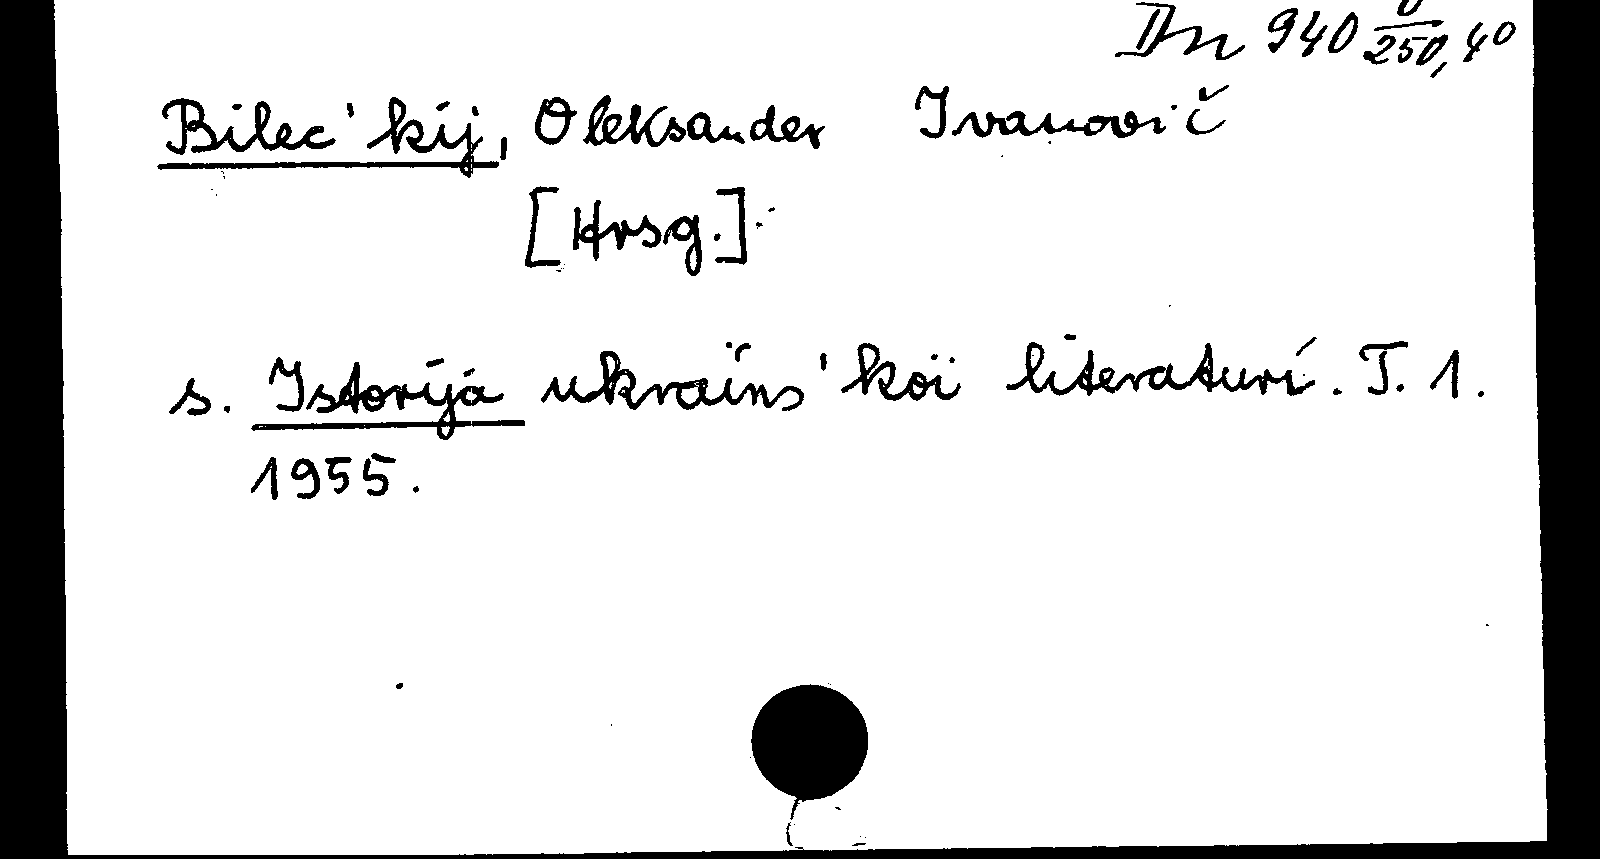 Dn 940 0/250,40
Bilec'kij, Oleksander Ivanovič
[Hrsg.]
s. Istorija ukraïns'koï literaturi. T. 1.
1955.